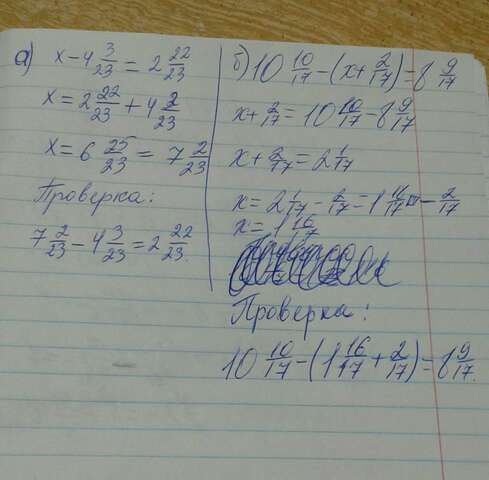 а) x - 4 3/23 = 2 22/23
x = 2 22/23 + 4 3/23
x = 6 25/23 = 7 2/23
Проверка:
7 2/23 - 4 3/23 = 2 22/23.
б) 10 10/17 - (x + 2/17) = 8 9/17
x + 2/17 = 10 10/17 - 8 9/17
x + 2/17 = 2 1/17
x = 2 1/17 - 2/17 = 1 - 2/17
x = 1 16/17
Проверка:
10 10/17 - (1 16/17 + 2/17) = 8 9/17.